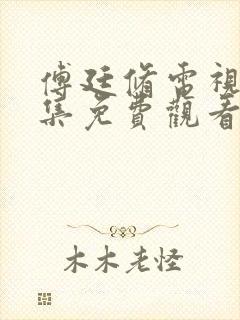 傅廷脩電視
集免費觀看
木木老怪